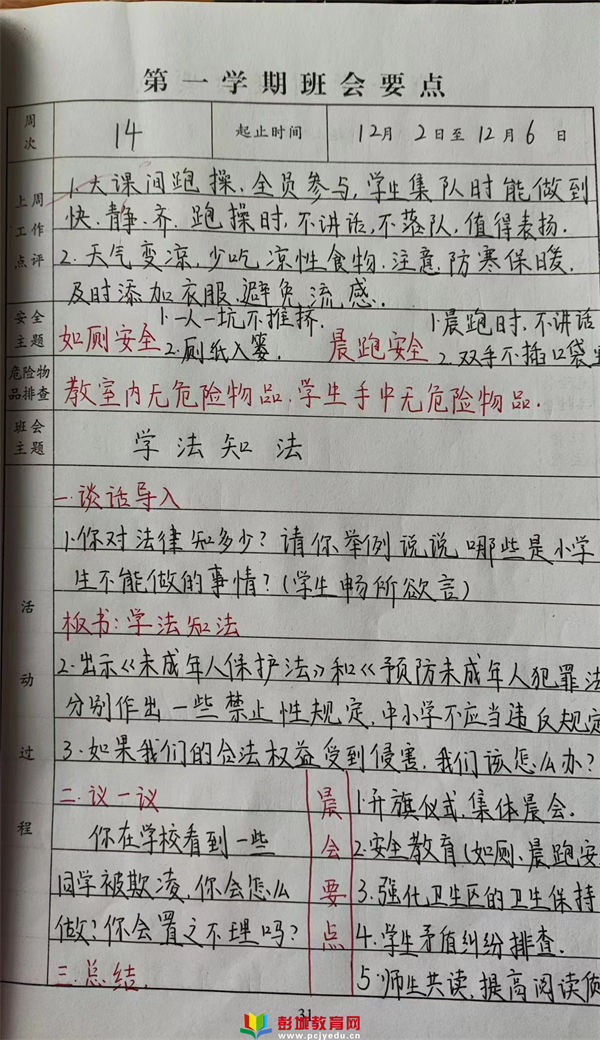 第一学期班会要点
周次 14 起止时间 12月2日至12月6日
上周工作点评
1.大课间跑操,全员参与,学生集队时能做到
快、静、齐.跑操时,不讲话,不落队,值得表扬.
2.天气变凉,少吃凉性食物.注意防寒保暖.
及时添加衣服,避免流感.
安全主题
如厕安全 1.一人一坑不推挤.
2.厕纸入篓.
晨跑安全 1.晨跑时,不讲话
2.双手不插口袋里
危险物品排查 教室内无危险物品.学生手中无危险物品.
班会主题 学法知法
活动过程
一.谈话导入
1.你对法律知多少?请你举例说说哪些是小学
生不能做的事情?(学生畅所欲言)
板书:学法知法
2.出示《未成年人保护法》和《预防未成年人犯罪法
分别作出一些禁止性规定,中小学不应当违反规定
3.如果我们的合法权益受到侵害,我们该怎么办?
二.议一议
你在学校看到一些
同学被欺凌,你会怎么
做?你会置之不理吗?
三.总结.
晨会要点
1.升旗仪式,集体晨会.
2.安全教育(如厕、晨跑安
3.强化卫生区的卫生保持
4.学生矛盾纠纷排查.
5.师生共读,提高阅读质
31
彭城教育网
www.pcjyedu.com